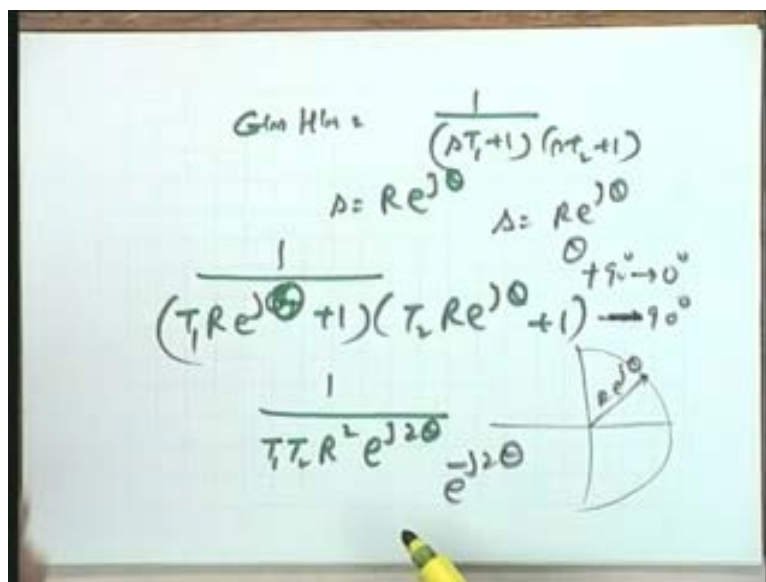 G(s) H(s) = 1 / (sT₁+1)(sT₂+1)
s = Re^jθ
s = Re^jθ
θ +90° → 0° → -90°
1 / (T₁Re^jθ +1)(T₂Re^jθ +1)
1 / T₁T₂R²e^j2θ
e^-j2θ
Re^jθ